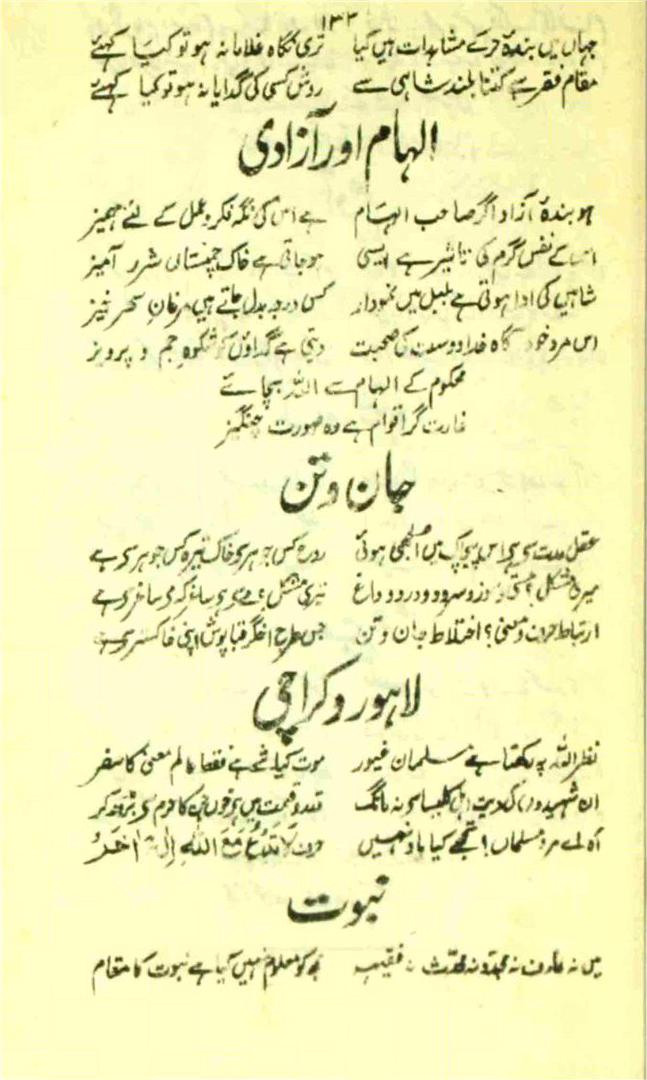 ۱۳۲
جہاں میں بندۂ حر کے مشاہدات ہیں کیا تری نگاہ غلامانہ ہو تو کیا کہئے
مقام فقر ہے کتنا بلند شاہی سے روش کسی کی گدایانہ ہو تو کیا کہئے
الہام اور آزادی
ہو بندۂ آزاد اگر صاحب الہام ہے اس کی نگہ فکر و عمل کے لئے مہمیز
اس کے نفس گرم کی تاثیر ہے ایسی ہو جاتی ہے خاک چمنستاں شرر آمیز
شاہیں کی ادا ہوتی ہے بلبل میں نمودار کس درجہ بدل جاتے ہیں مرغان سحر خیز
اس مرد خود آگاہ و خدا دوست کی صحبت دیتی ہے گداؤں کو شکوہ جم و پرویز
محکوم کے الہام سے اللہ بچائے
غارت گر اقوام ہے وہ صورت چنگیز
جان و تن
عقل مدت سے ہے اس پیچاک میں الجھی ہوئی روح کس جوہر سے خاک تیرہ کس جوہر سے ہے
میری مشکل؟ مستی و سوز و سرور و درد و داغ تیری مشکل؟ مے سے ہے ساغر کہ مے ساغر سے ہے
ارتباط حرف و معنی؟ اختلاط جان و تن جس طرح اخگر قبا پوش اپنی خاکستر سے ہے
لاہور و کراچی
نظر اللہ پہ رکھتا ہے مسلمان غیور موت کیا شے ہے فقط عالم معنی کا سفر
ان شہیدوں کی دیت اہل کلیسا سے نہ مانگ قدر و قیمت میں ہے خوں جن کا حرم سے بڑھ کر
آہ اے مرد مسلماں! تجھے کیا یاد نہیں حرف لَا تَدْعُ مَعَ اللّٰہِ اِلٰہًا اٰخَرَ
نبوت
میں نہ عارف نہ مجدد نہ محدث نہ فقیہہ مجھ کو معلوم نہیں کیا ہے نبوت کا مقام